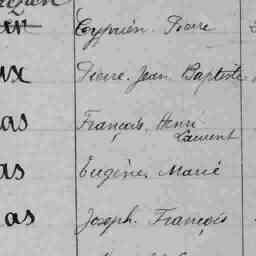 Cyprien. Pierre
ux Pierre. Jean Baptiste
as François, Henri
Laurent
as Eugène. Marie
as Joseph. François